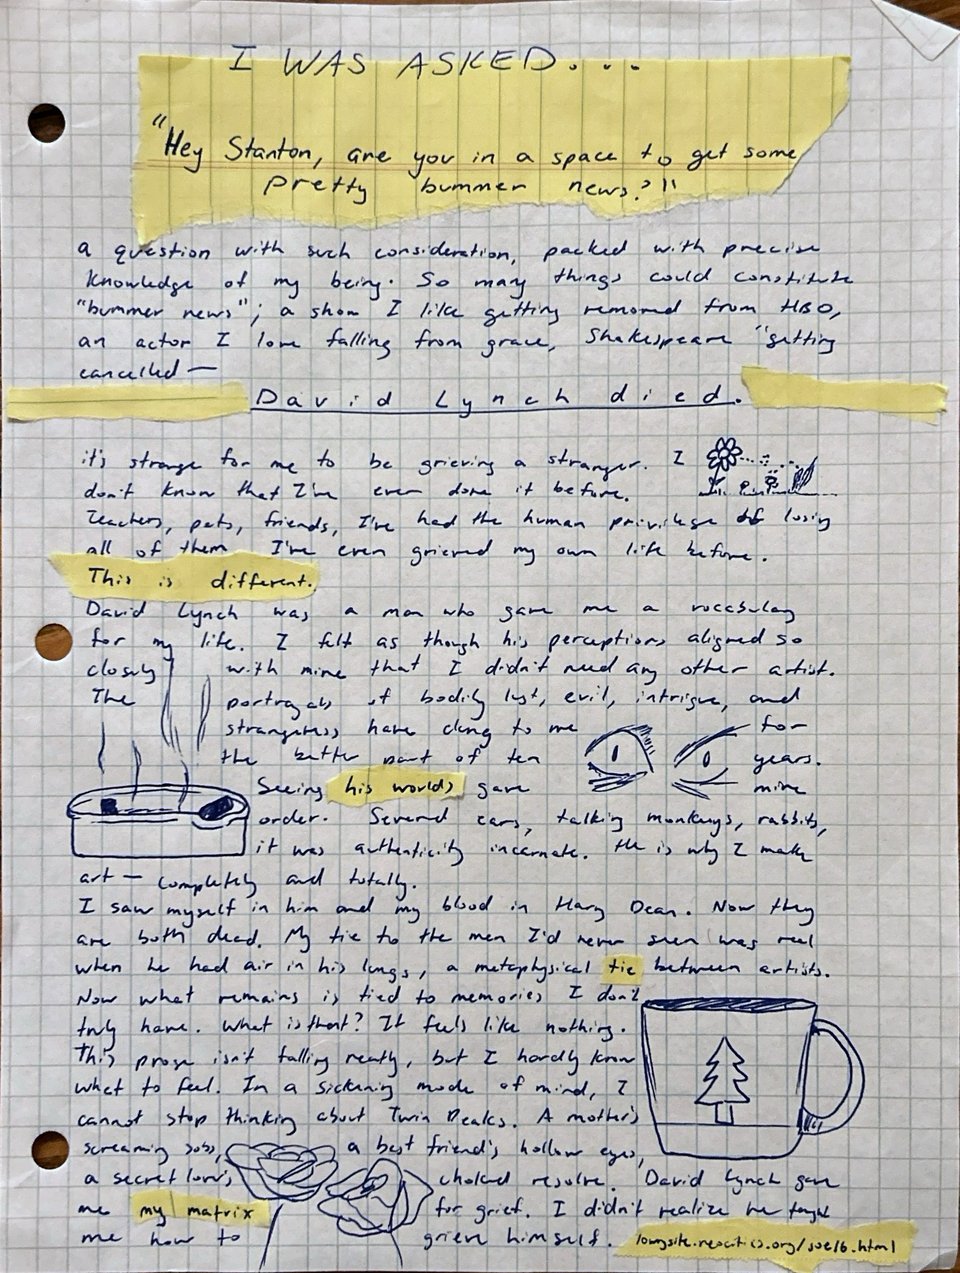 I WAS ASKED...
"Hey Stanton, are you in a space to get some
pretty bummer news?"
a question with such consideration, packed with precise
knowledge of my being. So many things could constitute
"bummer news"; a show I like getting removed from HBO,
an actor I love falling from grace, Shakespeare "getting
cancelled —
David Lynch died.
it's strange for me to be grieving a stranger. I
don't know that I've ever done it before.
Teachers, pets, friends, I've had the human privilege of losing
all of them. I've even grieved my own life before.
This is different.
David Lynch was a man who gave me a vocabulary
for my life. I felt as though his perceptions aligned so
closely with mine that I didn't need any other artist.
The portrayals of bodily lust, evil, intrigue, and
strangeness have clung to me for
the better part of ten years.
Seeing his worlds gave mine
order. Severed ears, talking monkeys, rabbits,
it was authenticity incarnate. He is why I make
art — completely and totally.
I saw myself in him and my blood in Harry Dean. Now they
are both dead. My tie to the men I'd never seen was real
when he had air in his lungs, a metaphysical tie between artists.
Now what remains is tied to memories I don't
truly have. What is that? It feels like nothing.
This prose isn't falling neatly, but I hardly know
what to feel. In a sickening mode of mind, I
cannot stop thinking about Twin Peaks. A mother's
screaming sobs, a best friend's hollow eyes,
a secret love's choked resolve. David Lynch gave
me my matrix for grief. I didn't realize he taught
me how to grieve himself.